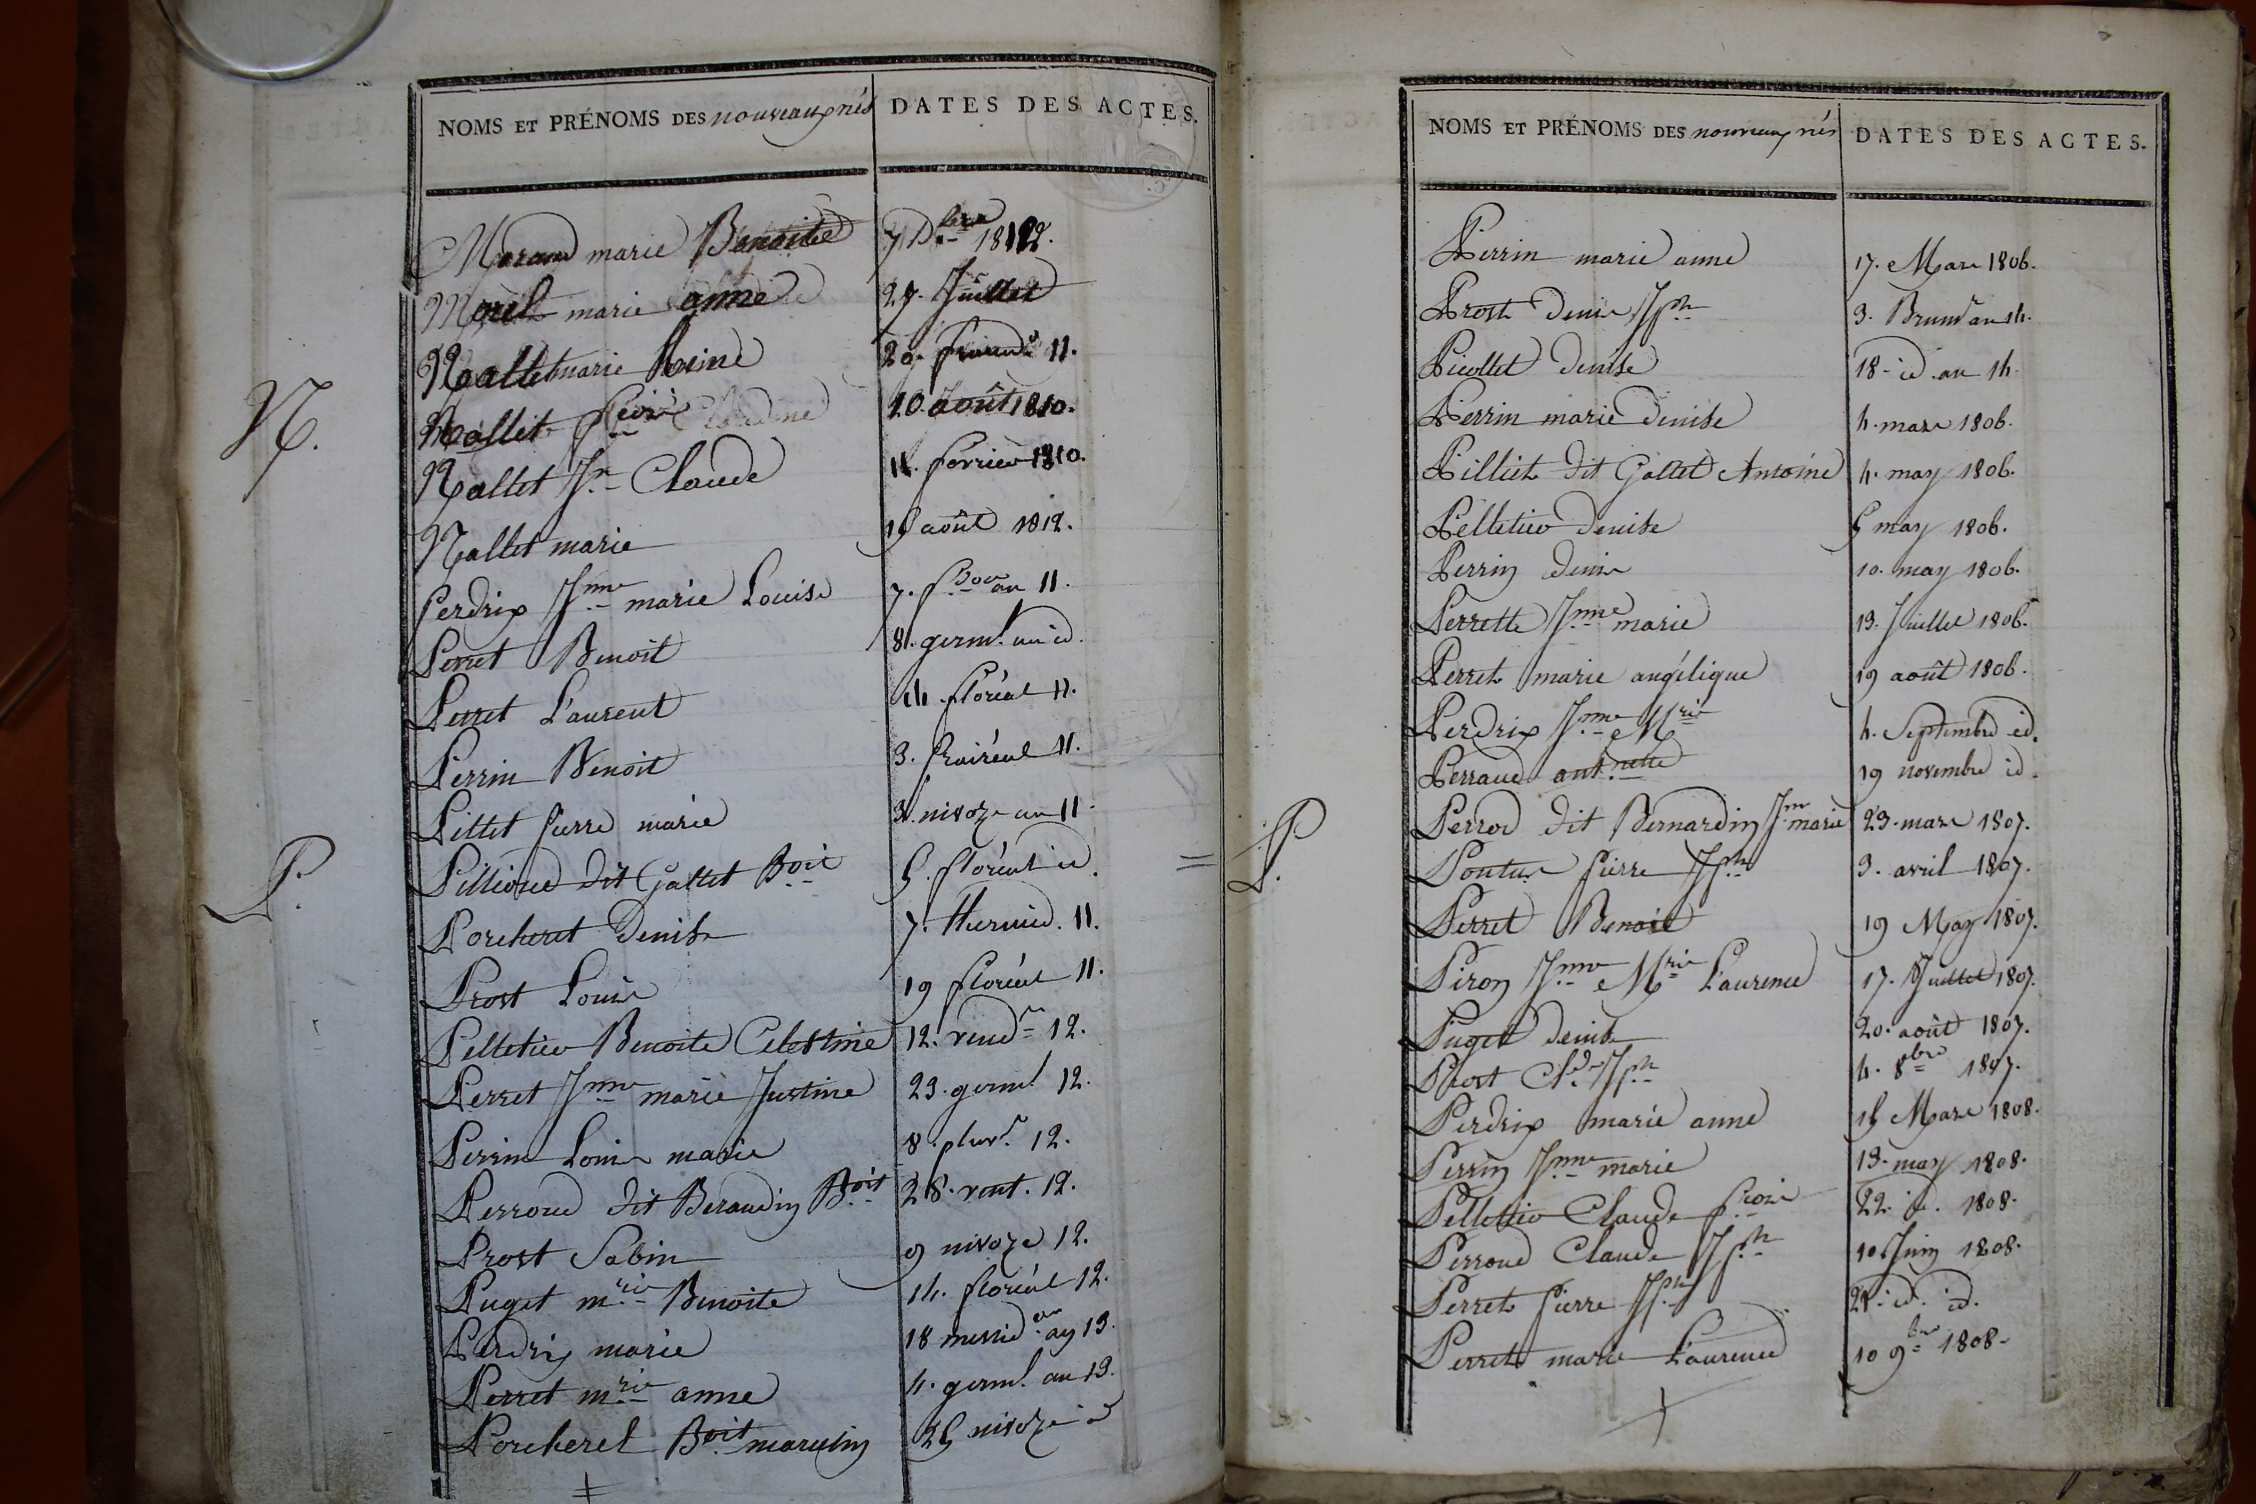 NOMS ET PRÉNOMS DES nouveaux nés DATES DES ACTES.
Morand marie Benoite 7 Dbre 1812.
Morel marie anne 27. Juillet
N.
Nallet marie Reine 20. frimre 11.
Nallet fcois 10. août 1810.
Nallet Jn Claude février 1810.
Nallet marie 15 août 1812.
Perdrix Jnne marie Louise 7. an 11.
Perret Benoit 8. germl. an id.
Perret Laurent 14 floréal 11.
Perrin Benoit 3. Prairéal 11.
Pillet pierre marie nivoze an 11.
P.
Pillioud dit Gallet Boit 5. floréal id.
Porcheret Denise 7. thermid. 11.
Prost Louis 19 floréal 11.
Pelletier Benoite Celestine 12. vendre 12.
Perret Jnne marie Justine 23. germl 12.
Perrin Louis marie 8. pluvse. 12.
Perroud dit Beraudin Boit 28. vent. 12.
Prost Sabin 9 nivoze 12.
Puget mrie Benoite 14. floréal 12.
Perdrix marie 18 messidor an 13.
Perret mrie anne 4. germl. an 13.
Porcherel Boit marcelin 25 nivoze id
NOMS ET PRÉNOMS DES nouveaux nés DATES DES ACTES.
Perrin marie anne 17. Mars 1806.
Prost Denis Jph 3. Brumre an 14.
Picollet Denise 18 - id. an 14.
Perrin marie Denise 4. mars 1806.
Pilliet dit Gallet Antoine 4. may 1806.
Pelletier Denise 5 may 1806.
Perrin Denis 10. may 1806.
Perrette Jnne marie 13. Juillet 1806.
Perret marie angélique 19 août 1806.
Perdrix Jnne Mrie 4. Septembre id.
Perraud antnette 19 novembre id.
Perrod dit Bernardin Jn marie 23. mars 1807.
P.
Pontus pierre Jph 3. avril 1807.
Perret Benoit 19 May 1807.
Piron Jnne Mrie Laurence 17. Juillet 1807.
Puget Denise 20. août 1807.
Prost Cde Jph 4. 8bre 1807.
Perdrix marie anne 15 Mars 1808.
Perrin Jnne marie 13. may 1808.
Pelletier Claude fcois 22. id. 1808.
Perroud Claude Jph 10 Juin 1808.
Perret pierre Jph 21. id. id.
Perret marie Laurence 10 9bre 1808.